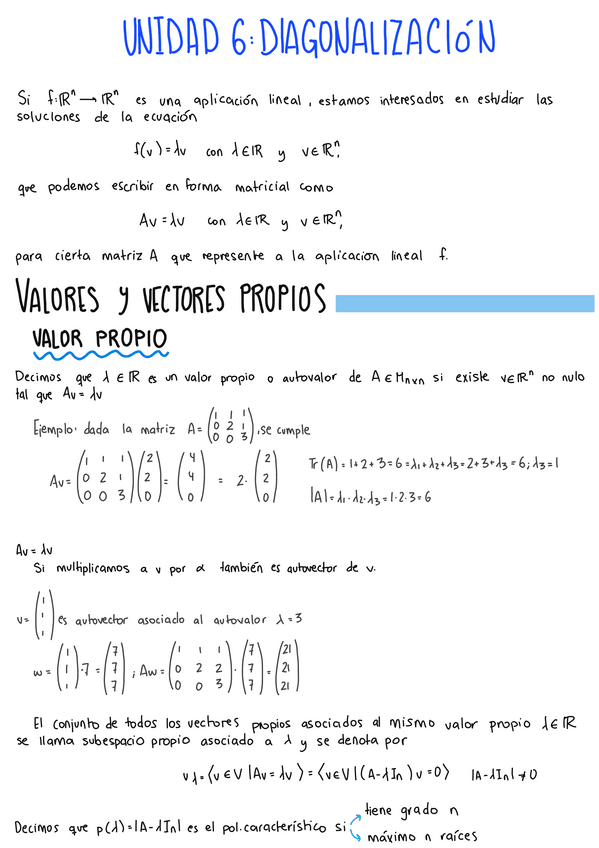 UNIDAD 6: DIAGONALIZACIÓN
Si f: ℝⁿ → ℝⁿ es una aplicación lineal, estamos interesados en estudiar las
soluciones de la ecuación
f(v) = λv con λ ∈ ℝ y v ∈ ℝⁿ,
que podemos escribir en forma matricial como
Av = λv con λ ∈ ℝ y v ∈ ℝⁿ,
para cierta matriz A que represente a la aplicación lineal f.
VALORES y VECTORES PROPIOS
VALOR PROPIO
Decimos que λ ∈ ℝ es un valor propio o autovalor de A ∈ Mnxn si existe v∈ℝⁿ no nulo
tal que Av = λv
Ejemplo: dada la matriz A = (1 1 1; 0 2 1; 0 0 3), se cumple
Av = (1 1 1; 0 2 1; 0 0 3) (2; 2; 0) = (4; 4; 0) = 2· (2; 2; 0)
Tr(A) = 1+2+3 = 6 = λ1+λ2+λ3 = 2+3+λ3 = 6; λ3 = 1
|A| = λ1·λ2·λ3 = 1·2·3 = 6
Av = λv
Si multiplicamos a v por α también es autovector de v.
v = (1; 1; 1) es autovector asociado al autovalor λ = 3
w = (1; 1; 1)·7 = (7; 7; 7); Aw = (1 1 1; 0 2 2; 0 0 3)·(7; 7; 7) = (21; 21; 21)
El conjunto de todos los vectores propios asociados al mismo valor propio λ∈ℝ
se llama subespacio propio asociado a λ y se denota por
vλ = ⟨v ∈ V | Av = λv⟩ = ⟨v∈V | (A-λIn)v = 0⟩ |A-λIn| ≠ 0
Decimos que p(λ) = |A-λIn| es el pol. característico si
tiene grado n
máximo n raíces